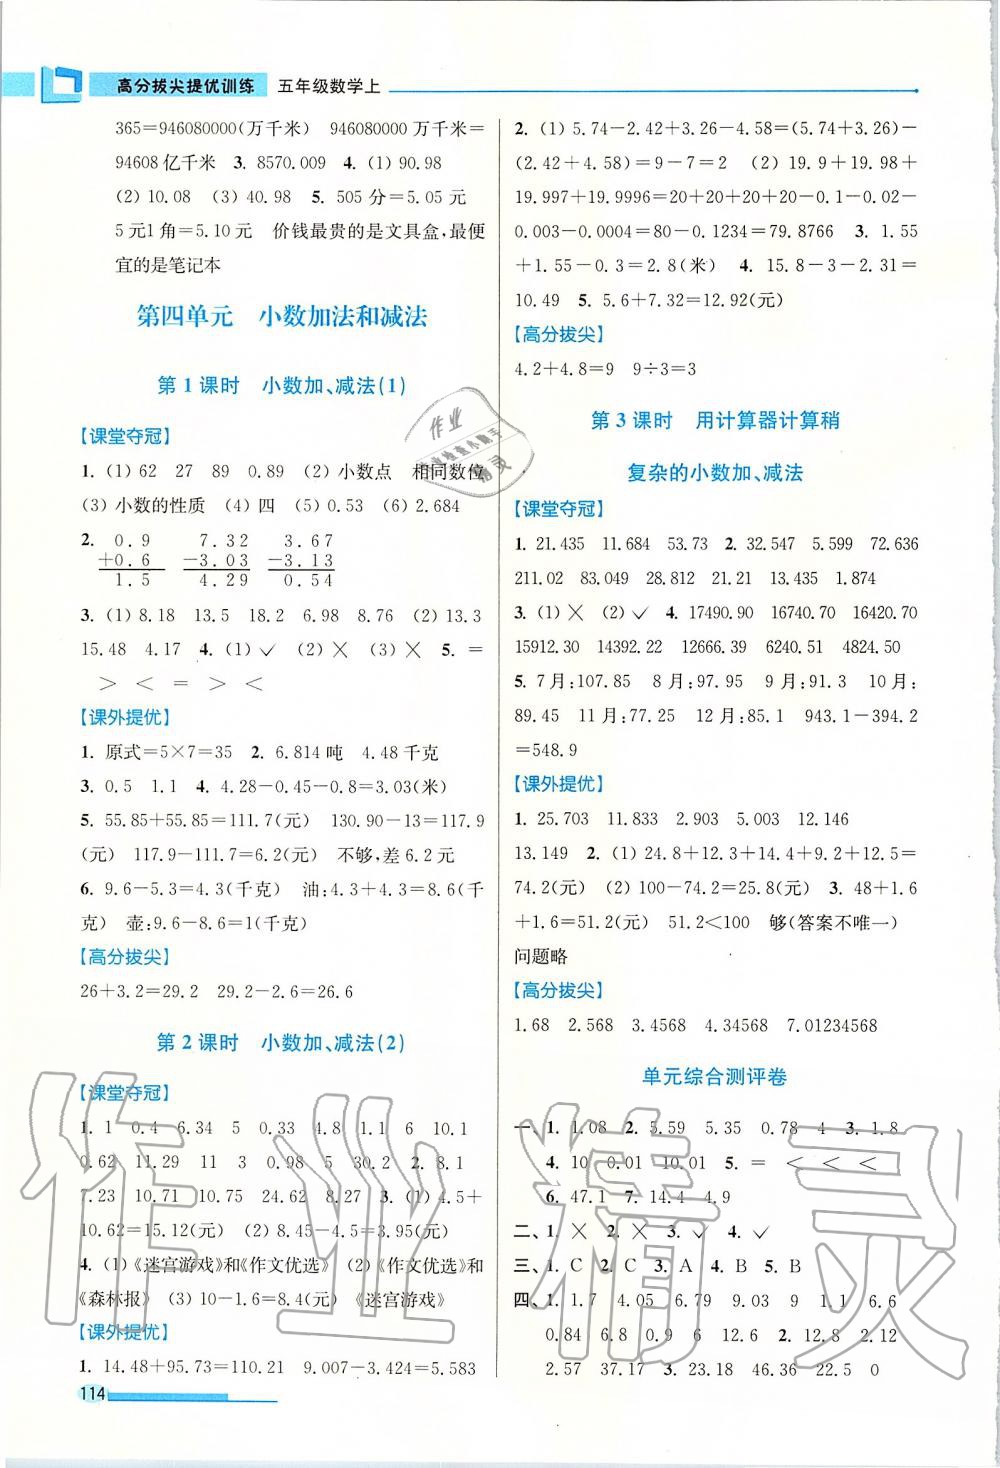 高分拔尖提优训练 五年级数学上
365=946080000(万千米) 946080000万千米=
94608亿千米 3. 8570.009 4. (1) 90.98
(2) 10.08 (3) 40.98 5. 505分=5.05元
5元1角=5.10元 价钱最贵的是文具盒,最便
宜的是笔记本
第四单元 小数加法和减法
第1课时 小数加、减法(1)
【课堂夺冠】
1. (1) 62 27 89 0.89 (2) 小数点 相同数位
(3) 小数的性质 (4) 四 (5) 0.53 (6) 2.684
2. 0.9 7.32 3.67
+0.6 -3.03 -3.13
1.5 4.29 0.54
3. (1) 8.18 13.5 18.2 6.98 8.76 (2) 13.3
15.48 4.17 4. (1) ✓ (2) × (3) × 5. =
> < = > <
【课外提优】
1. 原式=5×7=35 2. 6.814吨 4.48千克
3. 0.5 1.1 4. 4.28-0.45-0.8=3.03(米)
5. 55.85+55.85=111.7(元) 130.90-13=117.9
(元) 117.9-111.7=6.2(元) 不够,差6.2元
6. 9.6-5.3=4.3(千克) 油:4.3+4.3=8.6(千
克) 壶:9.6-8.6=1(千克)
【高分拔尖】
26+3.2=29.2 29.2-2.6=26.6
第2课时 小数加、减法(2)
【课堂夺冠】
1. 1 0.4 6.34 5 0.33 4.8 1.1 6 10.1
0.62 11.29 11 3 0.98 5 30.2 2. 8.1
7.23 10.71 10.75 24.62 8.27 3. (1) 4.5+
10.62=15.12(元) (2) 8.45-4.5=3.95(元)
4. (1)《迷宫游戏》和《作文优选》 (2)《作文优选》和
《森林报》 (3) 10-1.6=8.4(元) 《迷宫游戏》
【课外提优】
1. 14.48+95.73=110.21 9.007-3.424=5.583
114
2. (1) 5.74-2.42+3.26-4.58=(5.74+3.26)-
(2.42+4.58)=9-7=2 (2) 19.9+19.98+
19.997+19.9996=20+20+20+20-0.1-0.02-
0.003-0.0004=80-0.1234=79.8766 3. 1.55
+1.55-0.3=2.8(米) 4. 15.8-3-2.31=
10.49 5. 5.6+7.32=12.92(元)
【高分拔尖】
4.2+4.8=9 9÷3=3
第3课时 用计算器计算稍
复杂的小数加、减法
【课堂夺冠】
1. 21.435 11.684 53.73 2. 32.547 5.599 72.636
211.02 83.049 28.812 21.21 13.435 1.874
3. (1) × (2) ✓ 4. 17490.90 16740.70 16420.70
15912.30 14392.22 12666.39 6291.60 4824.50
5. 7月:107.85 8月:97.95 9月:91.3 10月:
89.45 11月:77.25 12月:85.1 943.1-394.2
=548.9
【课外提优】
1. 25.703 11.833 2.903 5.003 12.146
13.149 2. (1) 24.8+12.3+14.4+9.2+12.5=
74.2(元) (2) 100-74.2=25.8(元) 3. 48+1.6
+1.6=51.2(元) 51.2<100 够(答案不唯一)
问题略
【高分拔尖】
1.68 2.568 3.4568 4.34568 7.01234568
单元综合测评卷
一、1. 1.08 2. 5.59 5.35 0.78 4 3. 1.8
4. 10 0.01 10.01 5. = < < <
6. 47.1 7. 14.4 4.9
二、1. × 2. × 3. ✓ 4. ✓
三、1. C 2. C 3. A 4. B 5. B
四、1. 1.7 4.05 6.79 9.03 9 1.1 6.6
0.84 6.8 0.9 6 12.6 2. 12.8 2.12
2.57 37.17 3. 23.18 46.36 22.5 0
作业精灵
作业
检查小助手
精灵